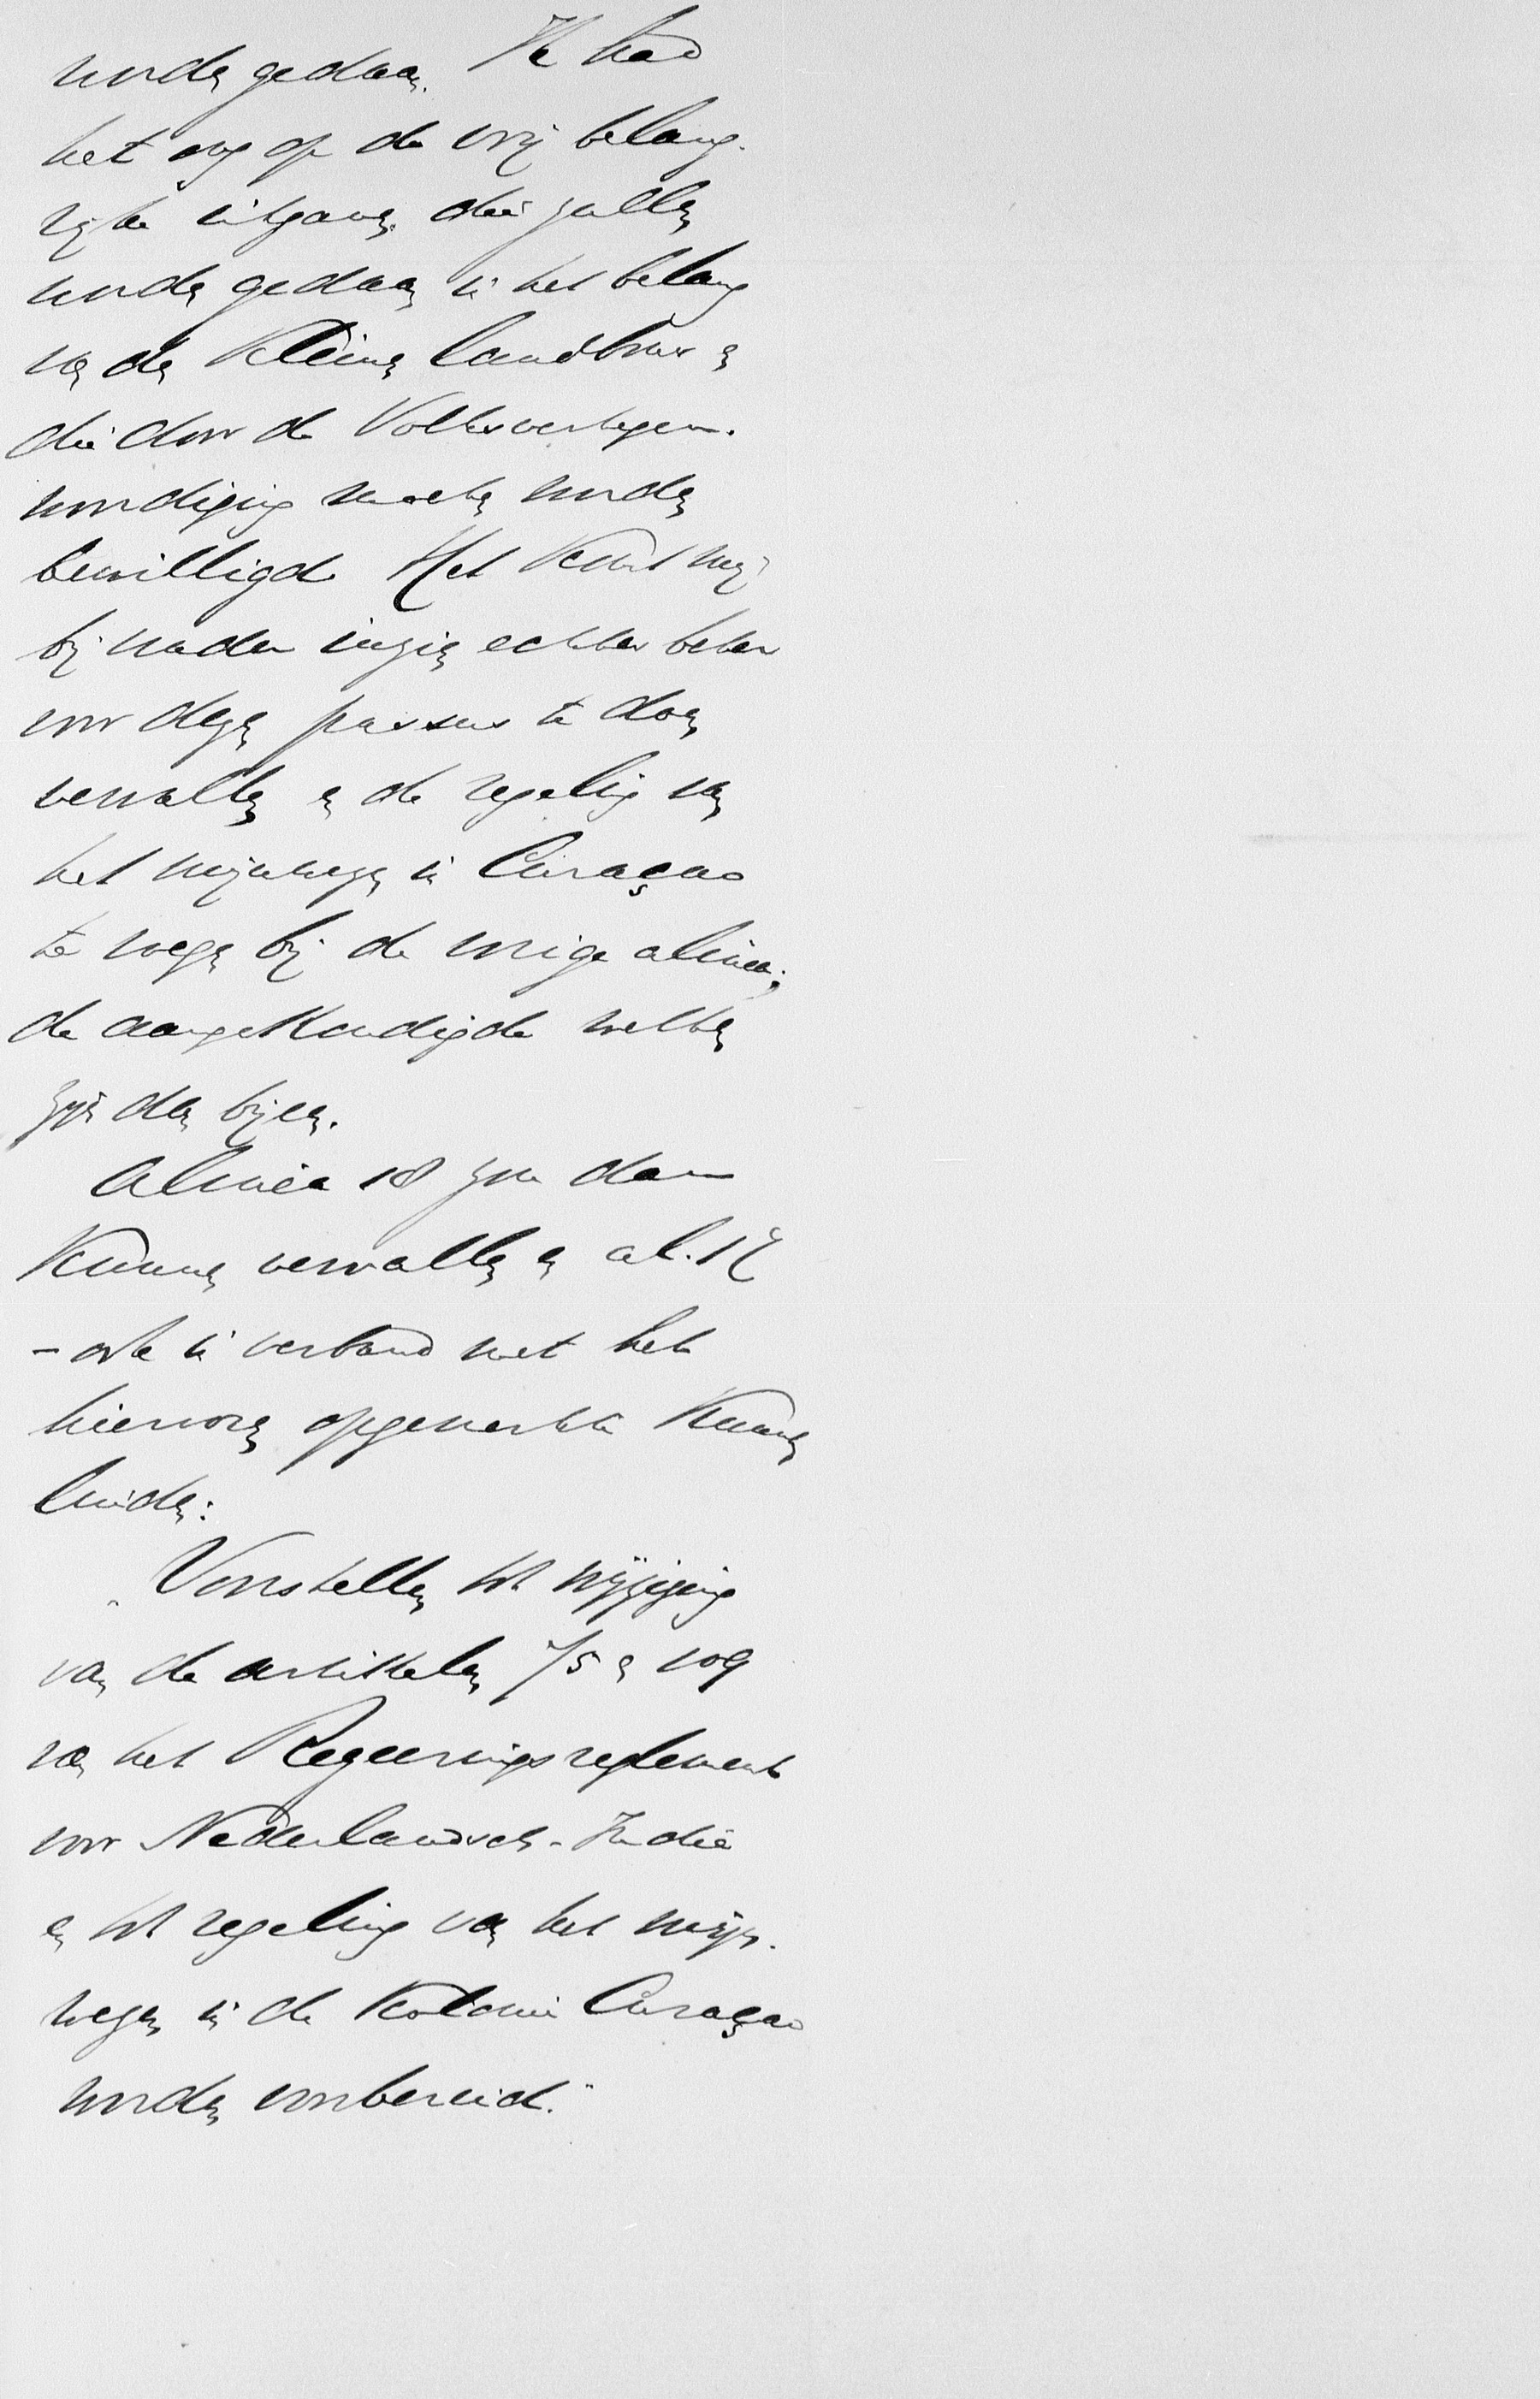 worden gedaan. Ik had
het oog op de vrij belang-
rijke uitgaven die zullen
worden gedaan in het belang
van den kleinen landbouw en
die door de Volksvertegen-
woordiging moeten worden
bewilligd. Het komt mij
bij nader inzien echter beter
voor dezen passus te doen
vervallen en de regeling van
het mijnwezen in Curaçao
te voegen bij de vorige alinea;
de aangekondigde wetten
zijn dan bijeen.
Alinea 18 zou dan
kunnen vervallen en al. 17
- ook in verband met het
hiervoren opgemerkte kunnen
luiden:
"Voorstellen tot wijziging
van de artikelen 75 en 109
van het Regeeringsreglement
voor Nederlandsch-Indië
en tot regeling van het mijn-
wezen in de Kolonie Curaçao
worden voorbereid."